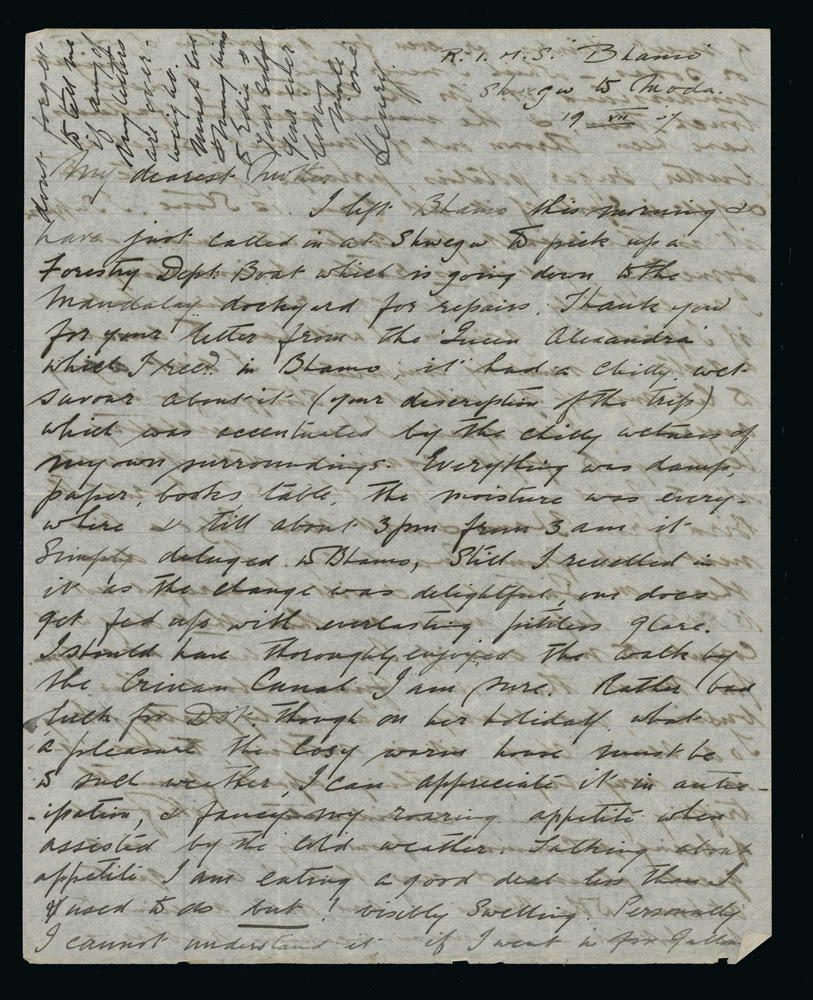 R.I.M.S. "Bhamo"
Shwegu to Moda.
19 VII 07
My dearest Mother
I left Bhamo this morning &
have just called in at Shwegu to pick up a
Forestry Dept Boat which is going down to the
Mandalay dockyard for repairs. Thank you
for your letter from the 'Queen Alexandra'
which I recd. in Bhamo, it had a chilly wet
savour about it (your description of the trip)
which was accentuated by the chilly wetness of
my own surroundings. Everything was damp,
paper, books table, the moisture was every-
where & till about 3 pm from 3 am it
simply deluged to Bhamo, Still I revelled in
it as the change was delightful, one does
get fed up with everlasting pitiless glare.
I should have thoroughly enjoyed the walk by
the Crinan Canal I am sure. Rather bad
luck for Dot though on her holiday, what
a pleasure the cosy warm house must be
to such weather, I can appreciate it in antic-
-ipation, & fancy my roaring appetite when
assisted by the cold weather. Talking about
appetite I am eating a good deal less than I
used to do but! visibly Swelling Personally
I cannot understand it if I went in for
dont forget
to tell me
if any of
my letters
are over-
weight.
Much love
to Eddie &
yourself
Your ever
loving
one
Henry.